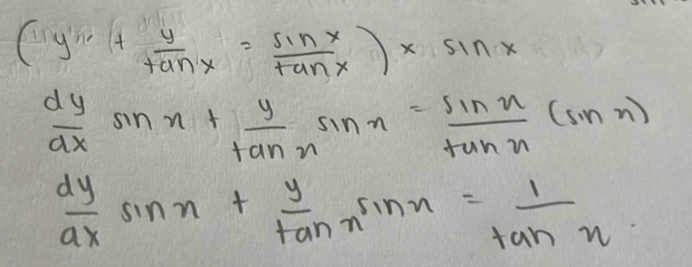 (y' + y/tan x = sin x/tan x) × sin x
dy/dx sin x + y/tan x sin x = sin x/tan x (sin x)
dy/dx sin x + y/tan x sin x = 1/tan x.